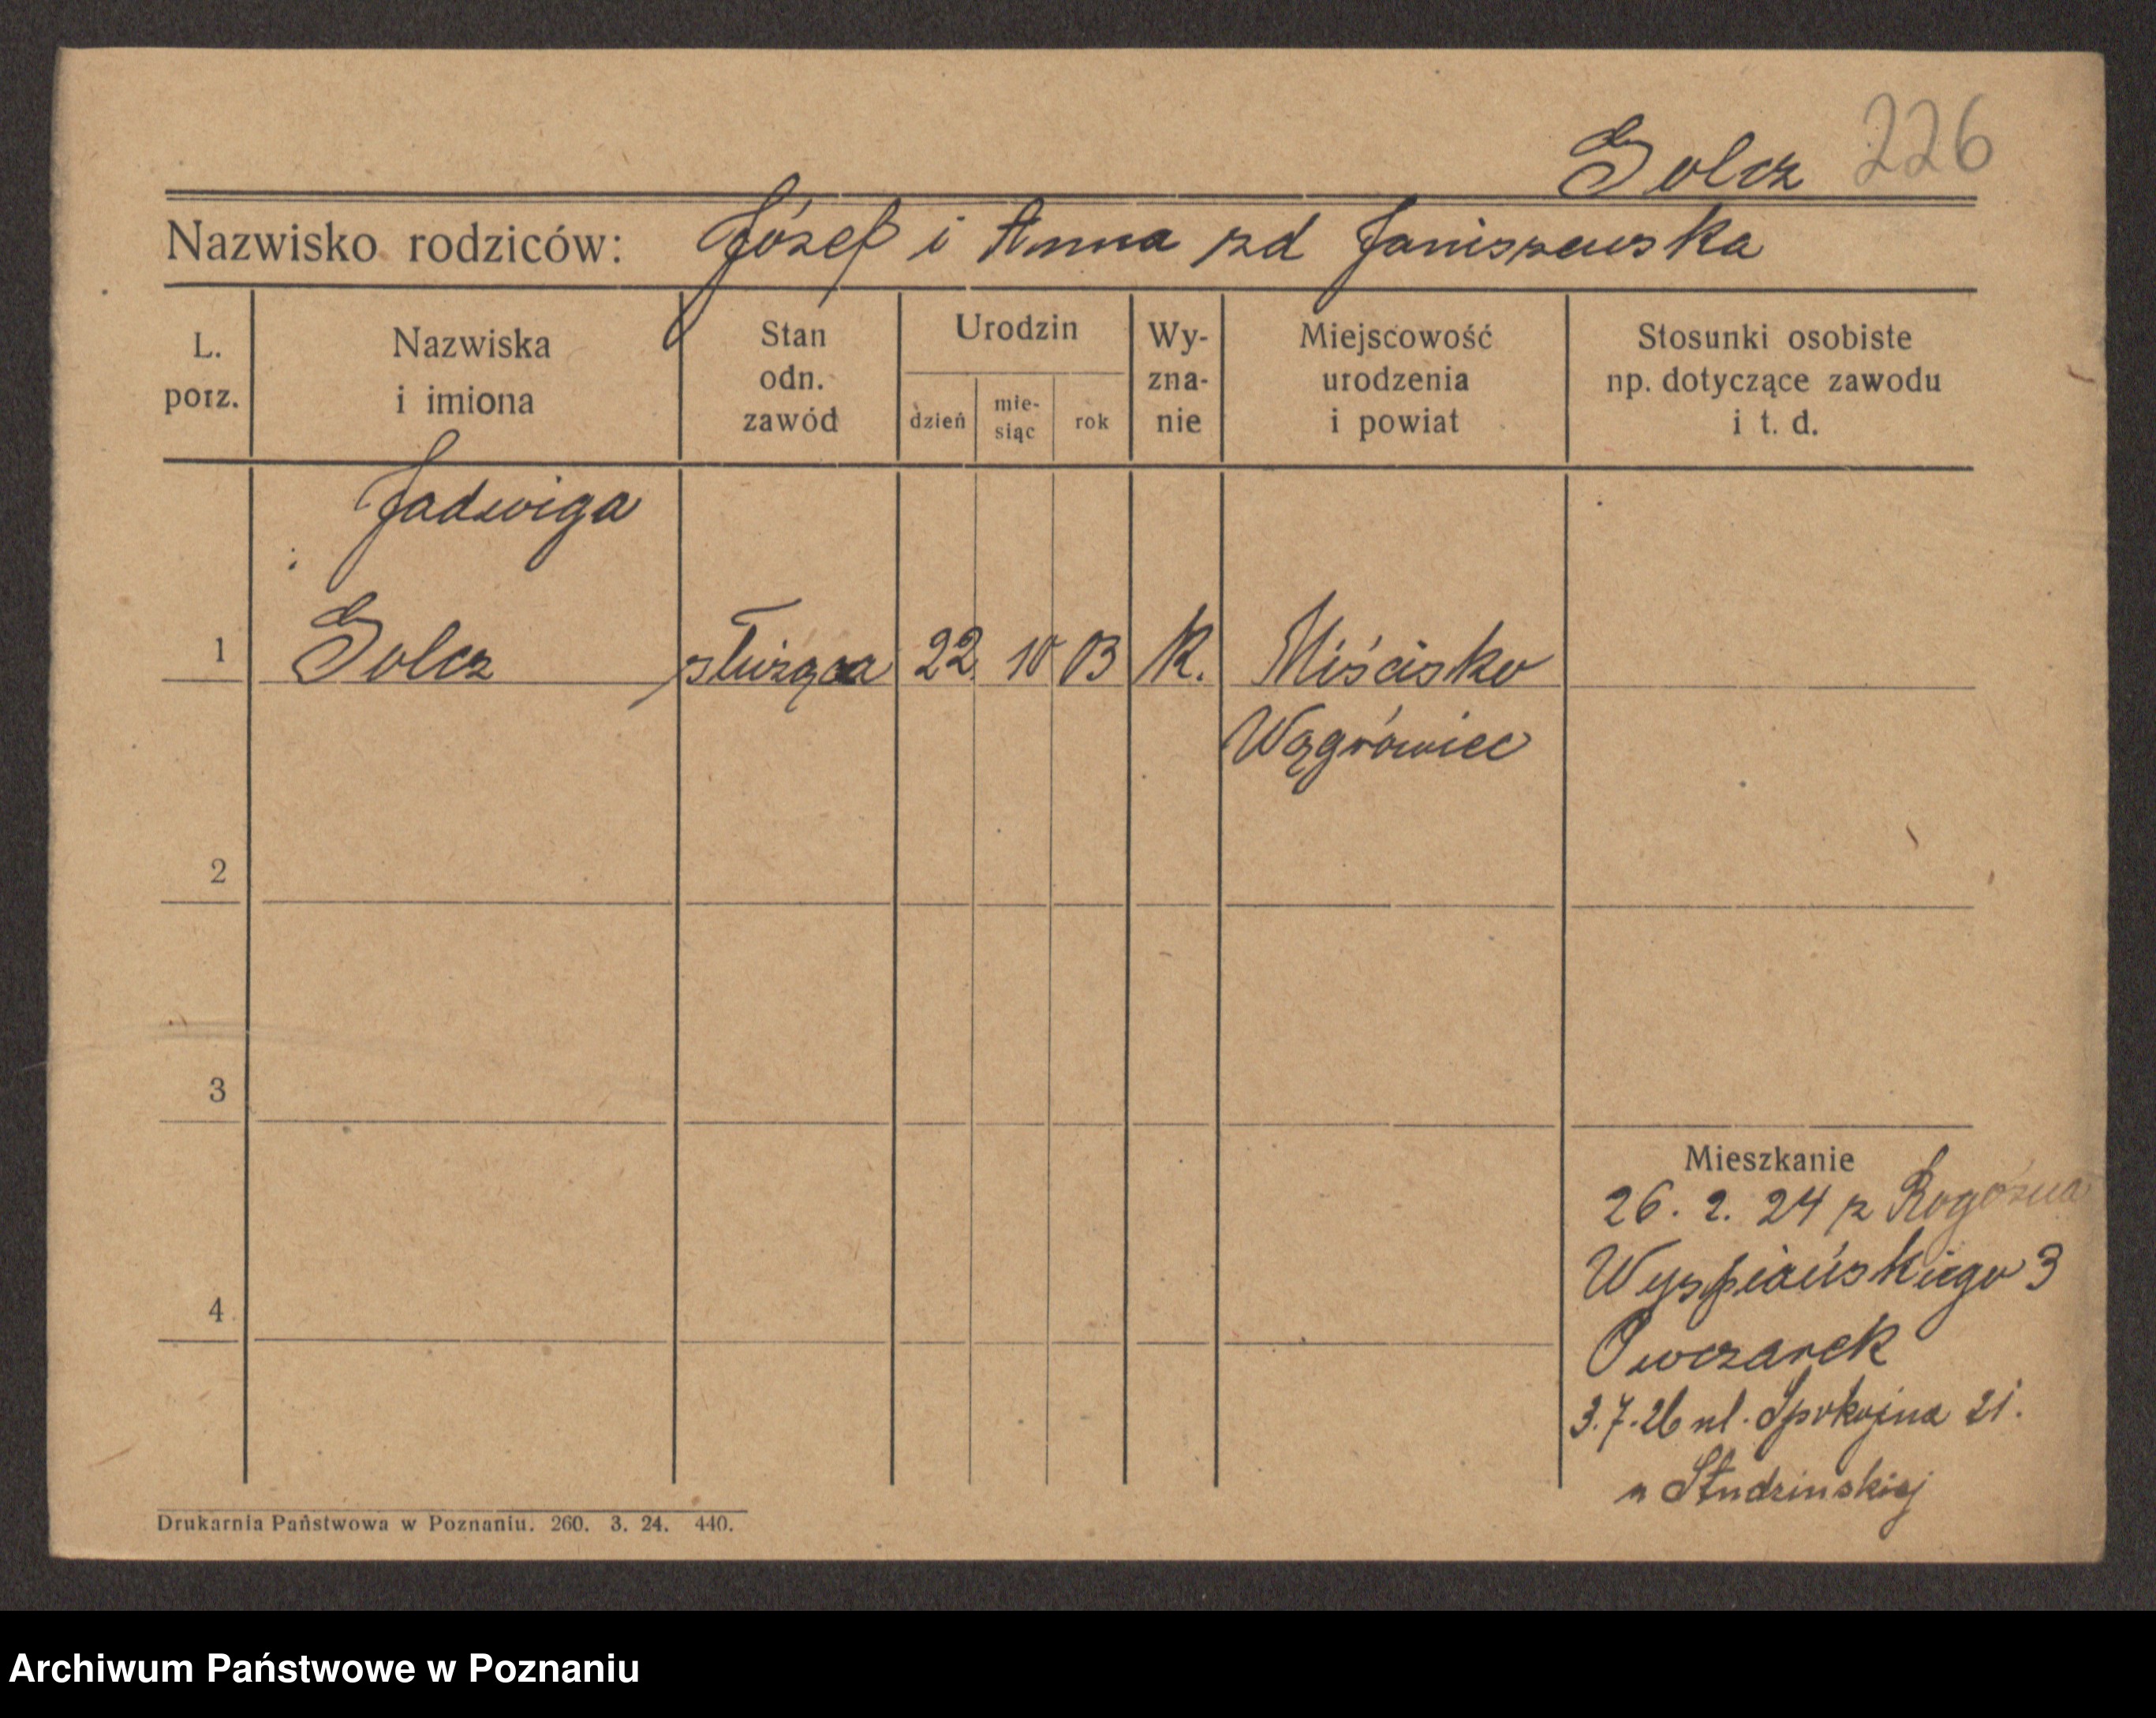 Golcz 226
Nazwisko rodziców: Józef i Anna zd Janiszewska
L. porz.
Nazwiska i imiona
Stan odn. zawód
Urodzin
dzień
mie-siąc
rok
Wy-zna-nie
Miejscowość urodzenia i powiat
Stosunki osobiste np. dotyczące zawodu i t. d.
Jadwiga
1 Golcz służąca 22. 10 03 K. Miścisko
Wągrówiec
2
3
Mieszkanie
26. 2. 24 z Rogoźna
Wyspiańskiego 3
4
Owczarek
3.7.26 ul. Spokojna 21.
u Studzinskiej
Drukarnia Państwowa w Poznaniu. 260. 3. 24. 440.
Archiwum Państwowe w Poznaniu